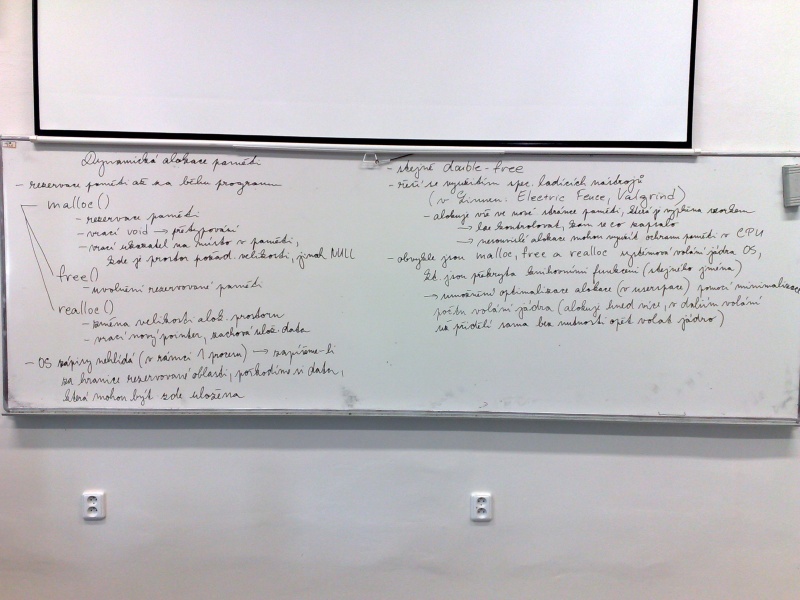 Dynamická alokace paměti
- rezervace paměti až za běhu programu
malloc()
- rezervace paměti
- vrací void → přetypování
- vrací ukazatel na místo v paměti,
kde je prostor požad. velikosti, jinak NULL
free()
- uvolnění rezervované paměti
realloc()
- změna velikosti alok. prostoru
- vrací nový pointer, zachová ulož. data
- OS zápisy nehlídá (v rámci 1 procesu) → zapíšeme-li
za hranice rezervované oblasti, poškodíme si data,
která mohou být zde uložena
- stejně double-free
- řeší se využitím spec. ladících nástrojů
(v Linuxu: Electric Fence, Valgrind)
- alokuje vše ve nové stránce paměti, která je vyplněna vzorkem
→ lze kontrolovat, kam se co zapsalo
→ nesouvislé alokace mohou využít ochranu paměti v CPU
- obvykle jsou malloc, free a realloc systémová volání jádra OS,
kt. jsou překryta knihovními funkcemi (stejného jména)
→ umožnění optimalizace alokace (v userspace) pomocí minimalizace
počtu volání jádra (alokuje hned více, v dalším volání
už přidělí sama bez nutnosti opět volat jádro)